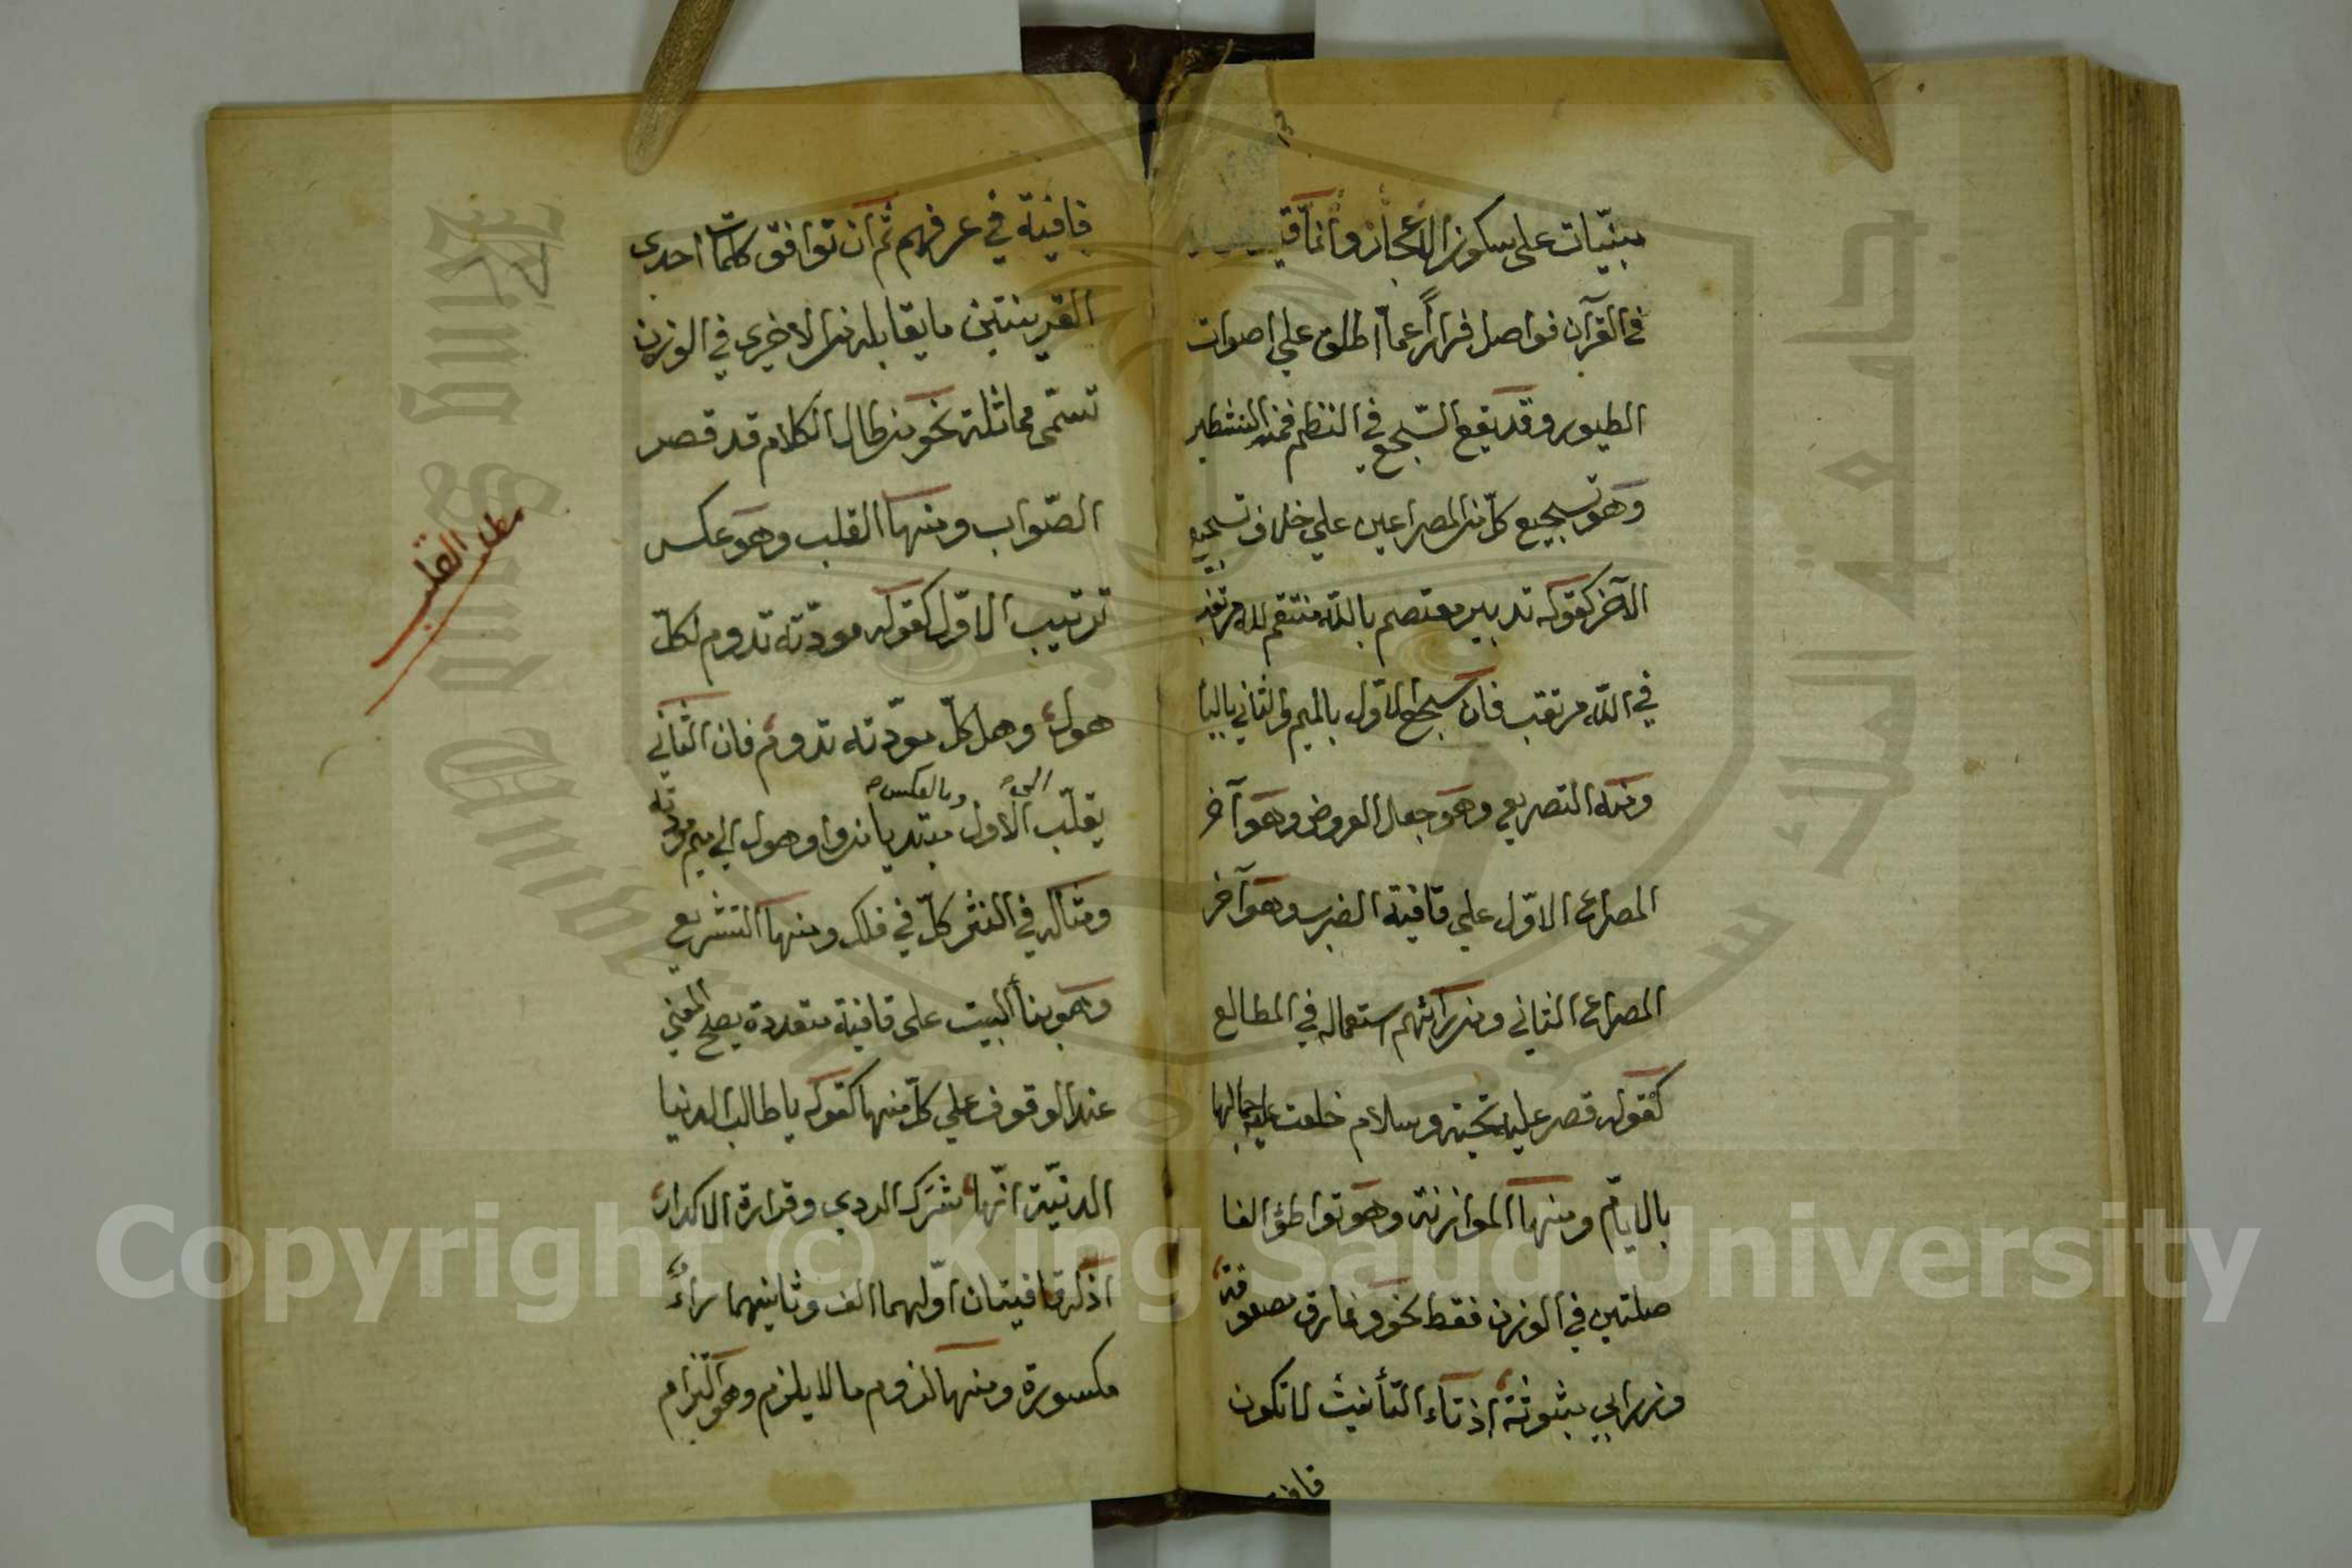 مبنيّات على سكون الأعجاز وانّما
في القرآن فواصل فراراً عمّا اطلق علي اصوات
الطيور وقد يقع السّجع في النظم فمنه التشطير
وهو تسجيع كلّ من المصراعين علي خلاف تسجيع
الآخر كقوله تدبير معتصم باللّه منتقم لله مرتغب
في اللّه مرتقب فان سجع الاوّل بالميم والثاني بالبا
ومنه التصريع وهو جعل العروض وهو آخر
المصراع الاوّل علي قافية الضرب وهو آخر
المصراع الثاني ومن رائهم استعماله في المطالع
كقوله قصر عليه تحية وسلام خلعت عليه جمالها
بالايّام ومنها الموازنة وهو تواطؤ الفا
صلتين في الوزن فقط نحو ونمارق مصفوفة
وزرابي مبثوثة اذ تاء التّأنيث لا تكون
قافية في عرفهم ثم ان توافق كلمات احدى
القرينتين ما يقابله من الاخرى في الوزن
تسمّى مماثلة نحو من طال الكلام قد قصر
الصّواب ومنها القلب وهو عكس
مطلب القلب
ترتيب الاوّل كقوله مودّته تدوم لكلّ
هول وهل كلّ مودّته تدوم فان الثّاني
وبالعكس
يقلّب الاول مبتديا من واو هول الي ميم مودته
ومثاله في النثر كلّ في فلك ومنها التشريع
وهو بنأ البيت على قافية متعددة يصلح المعني
عند الوقوف علي كلّ منها كقوله يا طالب الدنيا
الدنيّة انّها شرك الردي وقرارة الاكدار
اذ له قافيتان اوّلهما الف وثانيهما راءٌ
مكسورة ومنها لزوم ما لا يلزم وهو التزام
Copyright © King Saud University